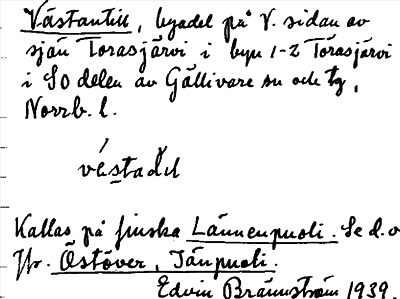 Västantill, byadel på V. sidan av
sjön Torasjärvi i byn 1-2 Torasjärvi
i SO delen av Gällivare sn och tg,
Norrb. l.
véstadl
Kallas på finska Lännenpuoli. Se d.o
Jfr. Östöver, Tänpuoli.
Edvin Brännström 1939.